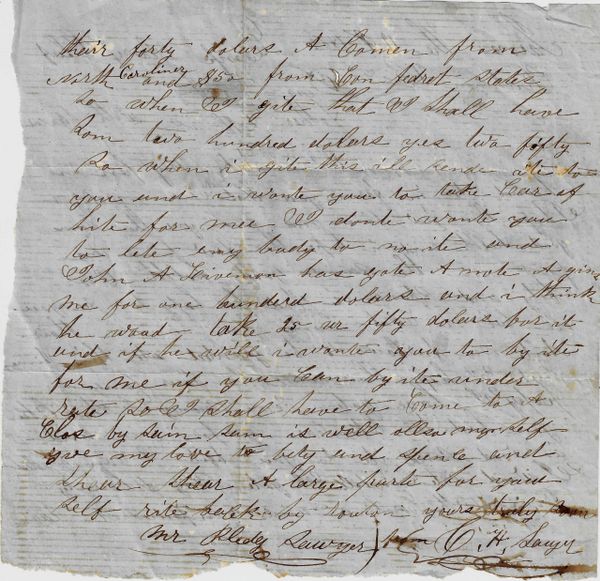 theirr forty dolars A Comen from
North Caroliner and $50 from Con fedret states
so when I gite that I shall have
som two hundred dolars yes two fifty
so when i gite this ill sende ite to
you and i wonte you to take Car of
hite for mee I donte wonte you
to lete eny body to no ite and
John A has gote A note A gins
me for one hunderd dolars and i think
he wood take 25 ur fifty dolars for it
and if he will i wonte you to by ite
for me if you Can by ite under
rate so I shall have to Come to A
Clos by sain sam is well allso my self
give my love to bety and spence and
shear A large parte for your
self rite back by yours truly
mr Sawyer from C. H. Sawyer